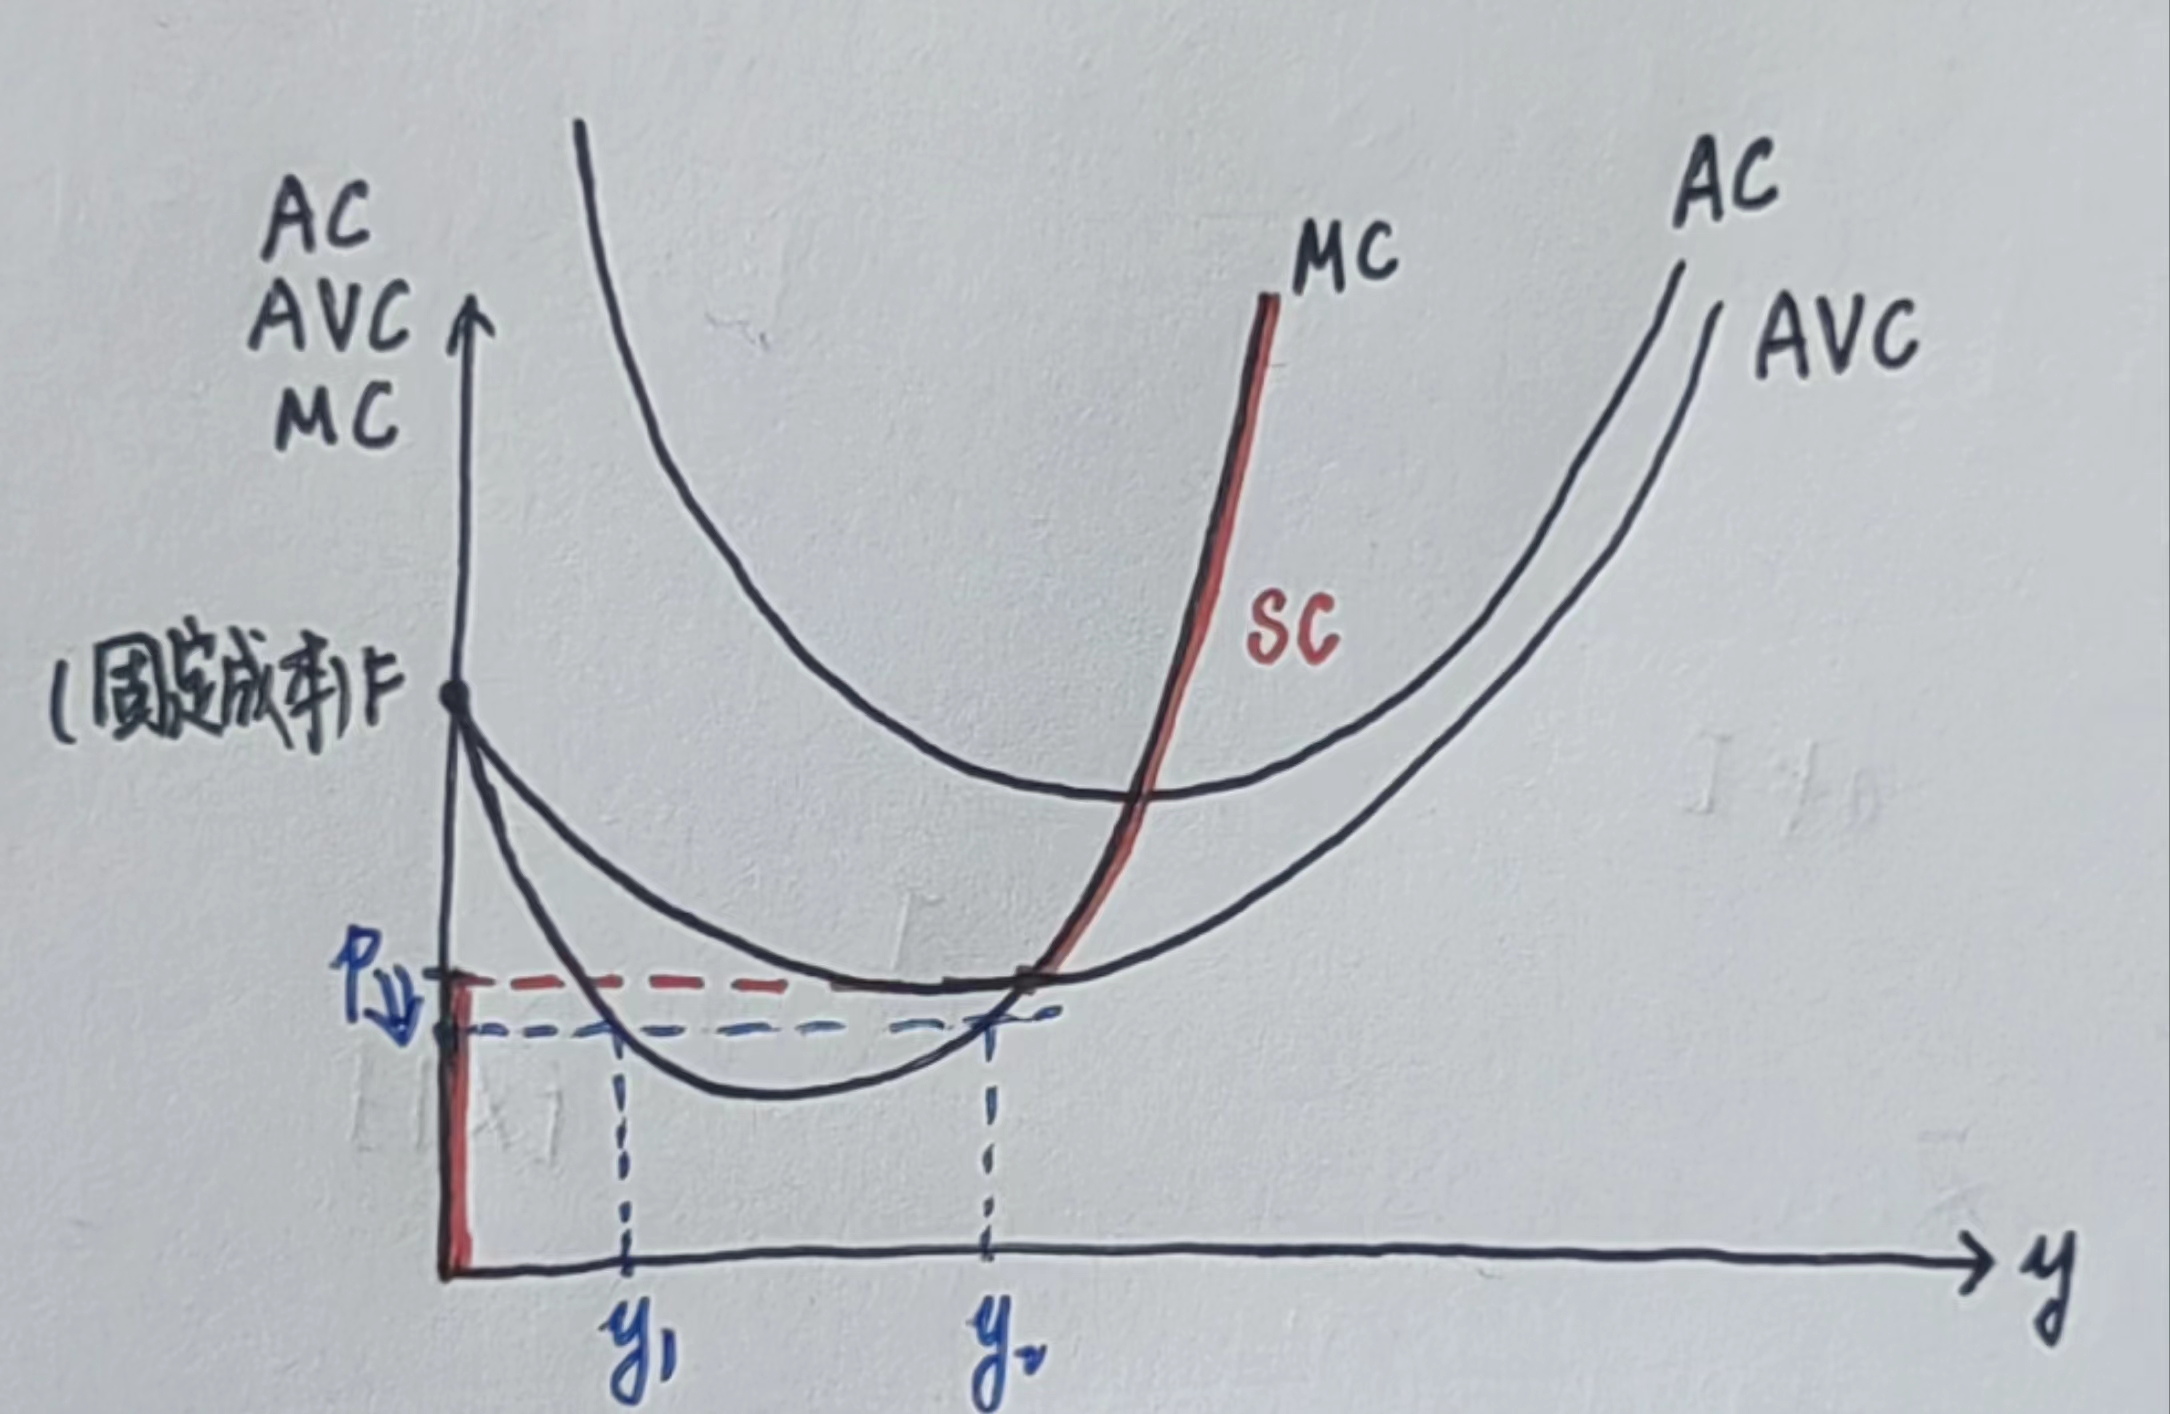 AC
AVC
MC
AC
MC
AVC
SC
(固定成本)F
P
y
y₁
y₂